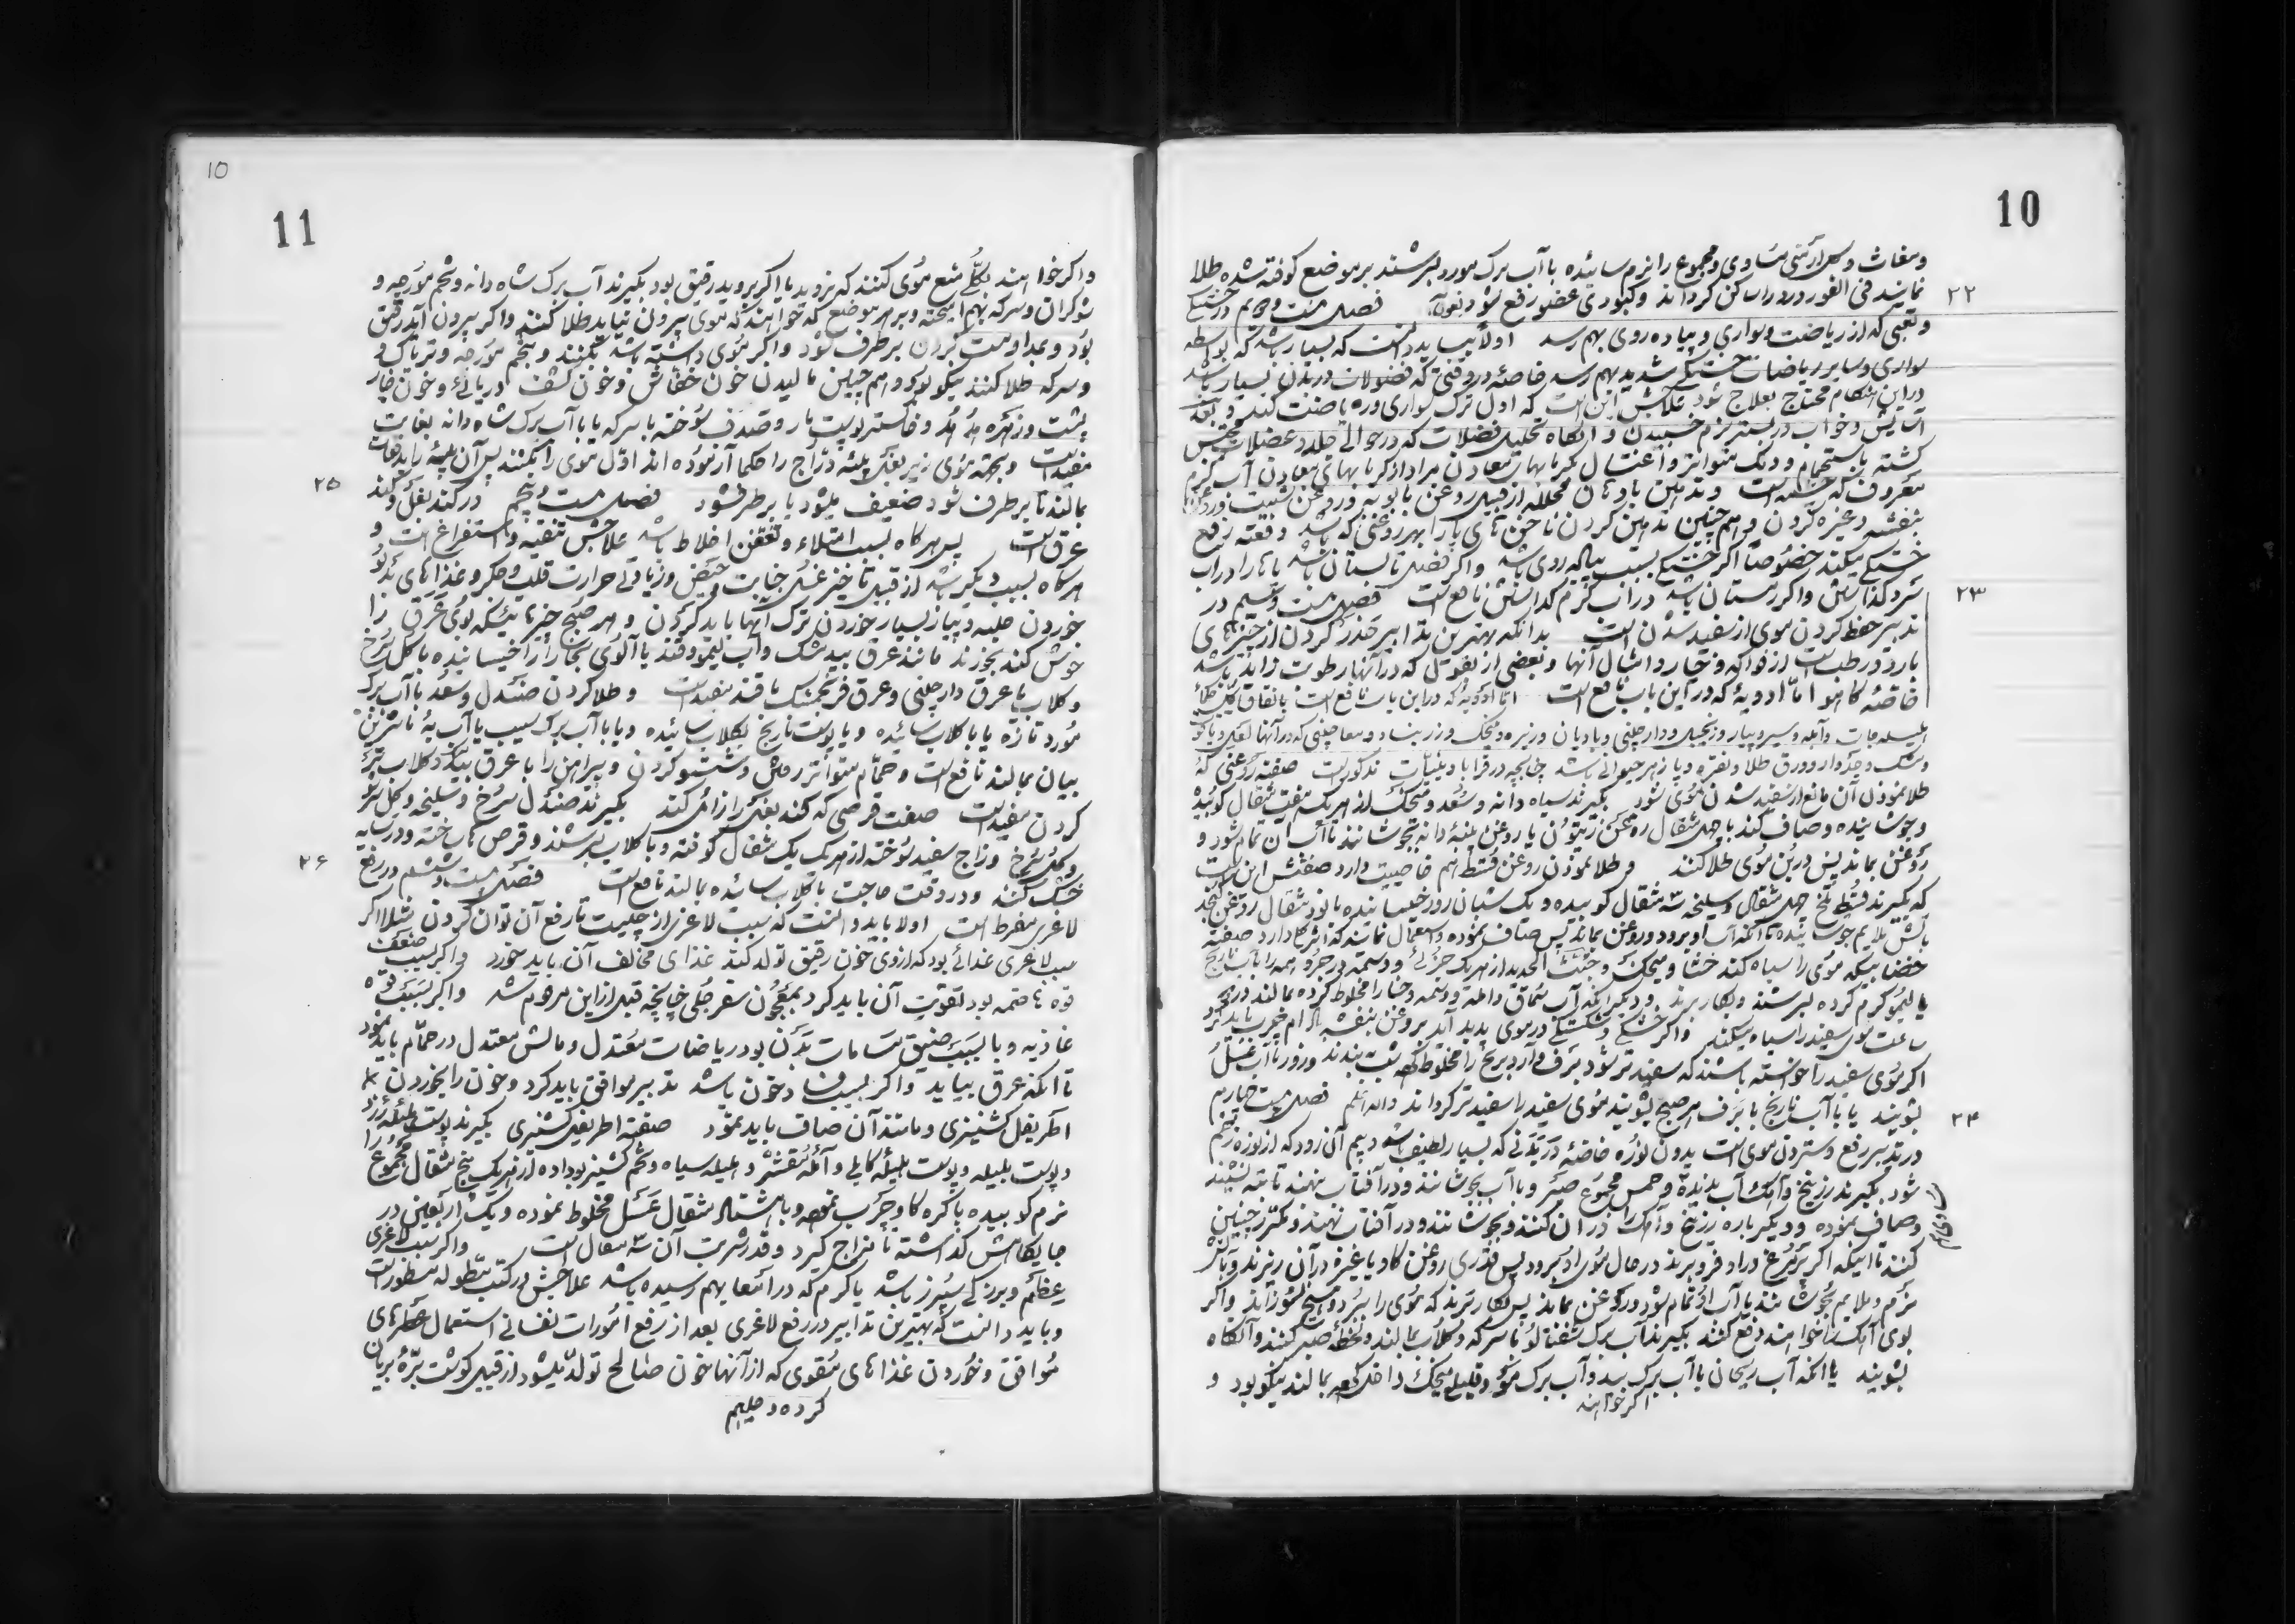 10
ومغاث و کل ارمنی مساوی ومجموع را نرم سائیده با آب برک مورد بسرشند بر موضع کوفته شده طلا
نمایند فی الفور درد را ساکن کرداند وکبودی عضو رفع شود فصل بیست ودویم در خستکی
۲۲
وتعبی که از ریاضت وسواری و پیاده روی بهم رسد اولا بباید دانست که بسیار باشد که بواسطه
سواری وسایر ریاضات خستکی شدید بهم رسد خاصه در وقتی که فضولات در بدن بسیار باشد
در این هنکام محتاج بعلاج شود علاجش این است که اول ترک سواری وریاضت کند و بعد
آسایش وخواب در بستر نرم خسبیدن و آنکاه تحلیل فضلات که در حوالی جلد و عضلات محتبس
کشته باستحمام ودلک متواتر واغتسال بکرمابهای معادن مراد از کرمابهای معادن آب کرم
معروف که است وتدهین بادهان محلله از قبیل روغن بابونه وروغن شبت وروغن
بنفشه وغیره کردن و هم چنین تدهین کردن ناخن های پا را بهر روغنی که باشد دفعة رفع
خستکی میکند خصوصا اکر خستکی بسبب پیاده روی باشد واکر فصل تابستان باشد پاها را در آب
سرد کذاشتن واکر زمستان باشد در آب کرم کذاشتن نافع است فصل بیست وسیم در
۲۳
تدبیر حفظ کردن موی از سفید شدن است بدانکه بهترین تدابیر حذر کردن از چیزهای
بارد ورطب است از فواکه وخیار وامثال آنها وبعضی از بقول که در آنها رطوبت زاید باشد
خاصه کاهو اما ادویه که در این باب نافع است
هلیله جات وآمله وسیر وپیاز وزنجبیل ودارچینی وبادیان وزیره ومیخک وزرنباد ومعاجینی که در آنها
ومشک وجدوار وورق طلا ونقره وپازهر حیوانی باشد چنانچه در قرابادینیات مذکور است صفت روغنی که
طلا نمودن آن مانع از سفید شدن موی شود بکیرند سیاه دانه وسعد ومیخک از هر یک هفت مثقال کوبیده
وجوشانیده وصاف کند با چهل مثقال روغن زیتون یا روغن پنبه دانه بجوشانند تا آب آن تمام شود و
روغن بماند پس در بن موی طلا کنند و طلا نمودن روغن قسط هم خاصیت دارد صفتش این است
که بکیرند قسط تلخ چهل مثقال وسلیخه سه مثقال کوبیده ویک شبانه روز خیسانیده با نود مثقال روغن کنجد
بآتش ملایم جوشانیده تا آنکه آب او برود وروغن بماند پس صاف نموده واستعمال نمایند که اثر کلی دارد صفت
خضابیکه موی را سیاه کند حنا ومیخک وخبث الحدید از هر یک جزئی ووسمه دو جزو همه را بآب نارنج
یا لیمو کرم کرده بسرشند وبکار برند ودیکر آنکه آب سماق وآمله ووسمه وحنا را مخلوط کرده بمالند در دو
ساعت موی سفید را سیاه میکند واکر خشکی وشکستکی در موی پدید آید بروغن بنفشه بادام چرب باید کرد
اکر موی سفید را خواسته باشند که سفیدتر شود برف وآرد برنج را مخلوط کرده شب ببندند وروز بآب عسل
بشویند یا با آب نارنج یا برف هر صبح بشویند موی سفید را سفیدتر کرداند والله اعلم فصل بیست چهارم
۲۴
در تدبیر رفع وستردن موی است بدون نوره خاصه در بدنی که بسیار لطیف باشد وبیم آن رود که از نوره زخم
شود بکیرند زرنیخ وآهک آب ندیده وخمس مجموع صبر وبا آب بجوشانند ودر آفتاب نهند تا ته نشیند
وصاف نموده ودیکر باره زرنیخ وآهک را در آن کنند وبجوشانند ودر آفتاب نهند ومکرر چنین
کنند تا اینکه اکر پر مرغ در او فرو برند در حال موی او برود پس قدری روغن کاو یا غیره در آن ریزند وبآتش
نرم وملایم بجوشانند تا آب او تمام شود وروغن بماند پس بکار برند که موی را ببرد وهیچ نسوزاند واکر
بوی آهک را خواهند دفع کنند بکیرند آب برک شفتالو با سرکه وکلاب بمالند ولحظه صبر کنند وآنکاه
بشویند یا آنکه آب ریحان با آب برک بید وآب برک مورد وقلیلی میخک داخل کرده بمالند نیکو بود و
اکر خواهند
10
11
واکر خواهند بکلی منع موی کنند که نروید یا اکر بروید رقیق بود بکیرند آب برک شاه دانه وتخم مورچه و
شوکران وسرکه بهم آمیخته وبر هر موضع که خواهند که موی بیرون نیاید طلا کنند واکر بیرون آید رقیق
بود وبمداومت کردن بر طرف شود واکر موی داشته باشد بکنند وتخم مورچه وتریاک
وسرکه طلا کنند نیکو بود وهم چنین مالیدن خون خفاش وخون کشف دریائی وخون
پشت وزهره هدهد وخاکستر پوست مار وصدف سوخته با سرکه یا با آب برک شاه دانه بغایت
مفید است وبجهة موی زیر بغل بیضه دراج را حکما آزموده اند اول موی را بکنند پس آن بیضه را بدفعات
بمالند تا بر طرف شود ضعیف میشود یا بر طرف شود فصل بیست وپنجم در کند بغل وکند
۲۵
عرق است پس هر کاه بسبب امتلاء وتعفن اخلاط باشد علاجش تنقیه واستفراغ است و
هر کاه بسبب دیکر باشد از قبیل تاخیر غسل جنابت وحیض وزیادتی حرارت قلب وجکر وغذاهای بدبو
خوردن حلبه وپیاز بسیار خوردن ترک آنها باید کردن وهر صبح چیزهائیکه بوی عرق را
خوش کند بخورند مانند عرق بیدمشک وآب لیمو وقند یا آلوی بخارا را خیسانیده با کل سرخ
وکلاب یا عرق دارچینی وعرق فرنجمشک با قند مفید است وطلا کردن صندل وسعد با آب برک
مورد تازه یا با کلاب سائیده ویا پوست نارنج بکلاب سائیده ویا با آب برک سیب یا آب به
بمالند نافع است وحمام متواتر رفتن وشستشو کردن وپیراهن را با عرق وکلاب تر
کردن مفید است صفت قرصی که کند بغل را زائل کند بکیرند صندل سرخ وسلیخه
وکل سرخ وزاج سفید سوخته از هر یک یک مثقال کوفته وبا کلاب بسرشند وقرص ها ساخته ودر سایه
خشک کنند ودر وقت حاجت با کلاب سائیده بمالند نافع است فصل بیست وششم در رفع
۲۶
لاغری مفرط است اولا باید دانست که سبب لاغری از چیست تا رفع آن توان کردن مثلا اکر
سبب لاغری غذائی بود که از وی خون رقیق تولد کند غذای مخالف آن باید خورد واکر بسبب ضعف
قوه هاضمه بود تقویت آن باید کرد بمعجون سفرجلی چنانچه قبل از این مرقوم شد واکر بسبب قوه
غاذیه ویا بسبب ضیق مسامات بدن بود ریاضات معتدل ومالش معتدل در حمام باید نمود
تا آنکه عرق بیاید واکر بسبب فساد خون باشد تدبیر موافق باید کرد وخون را بخوردن
اطریفل کشنیزی ومانند آن صاف باید نمود صفت اطریفل کشنیزی بکیرند پوست هلیله زرد
وپوست بلیله وپوست هلیله کابلی وآمله مقشر وهلیله سیاه وتخم کشنیز بوداده از هر یک پنج مثقال مجموع را
نرم کوبیده با کره کاو چرب نموده وبا هشتاد مثقال عسل مخلوط نموده ویک اربعین در
جایکاهش کذاشته تا مزاج کیرد وقدر شربت آن سه مثقال است واکر سبب لاغری
عظم وبزرکی سپرز باشد یا کرم که در امعا بهم رسیده باشد علاجش در کتب مطوله مسطور است
وباید دانست که بهترین تدابیر در رفع لاغری بعد از رفع امورات نفسانی استعمال حمامهای
موافق وخوردن غذاهای مقوی که از آنها خون صالح تولد میشود از قبیل کوشت بره بریان
کرده وحلیم